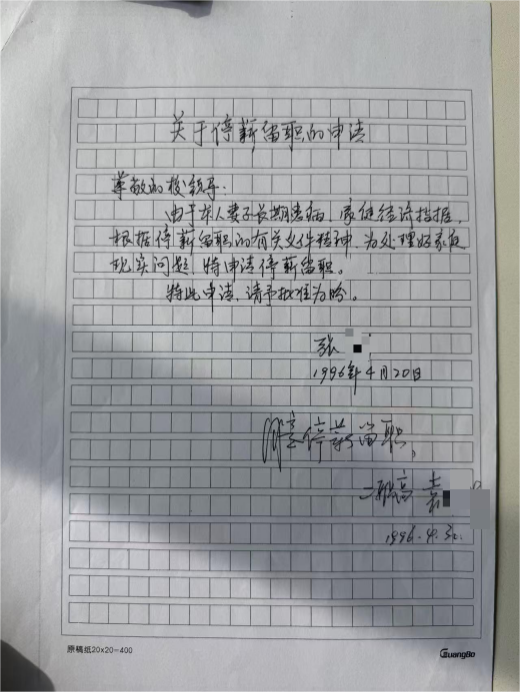 关于停薪留职的申请
尊敬的校领导:
由于本人妻子长期患病,家庭经济拮据,
根据停薪留职的有关文件精神,为处理好家庭
现实问题,特申请停薪留职。
特此申请,请予批准为盼。
张
1996年4月20日
同意停薪留职,
二职高 袁
1996.4.30.
原稿纸20x20-400
GuangBo